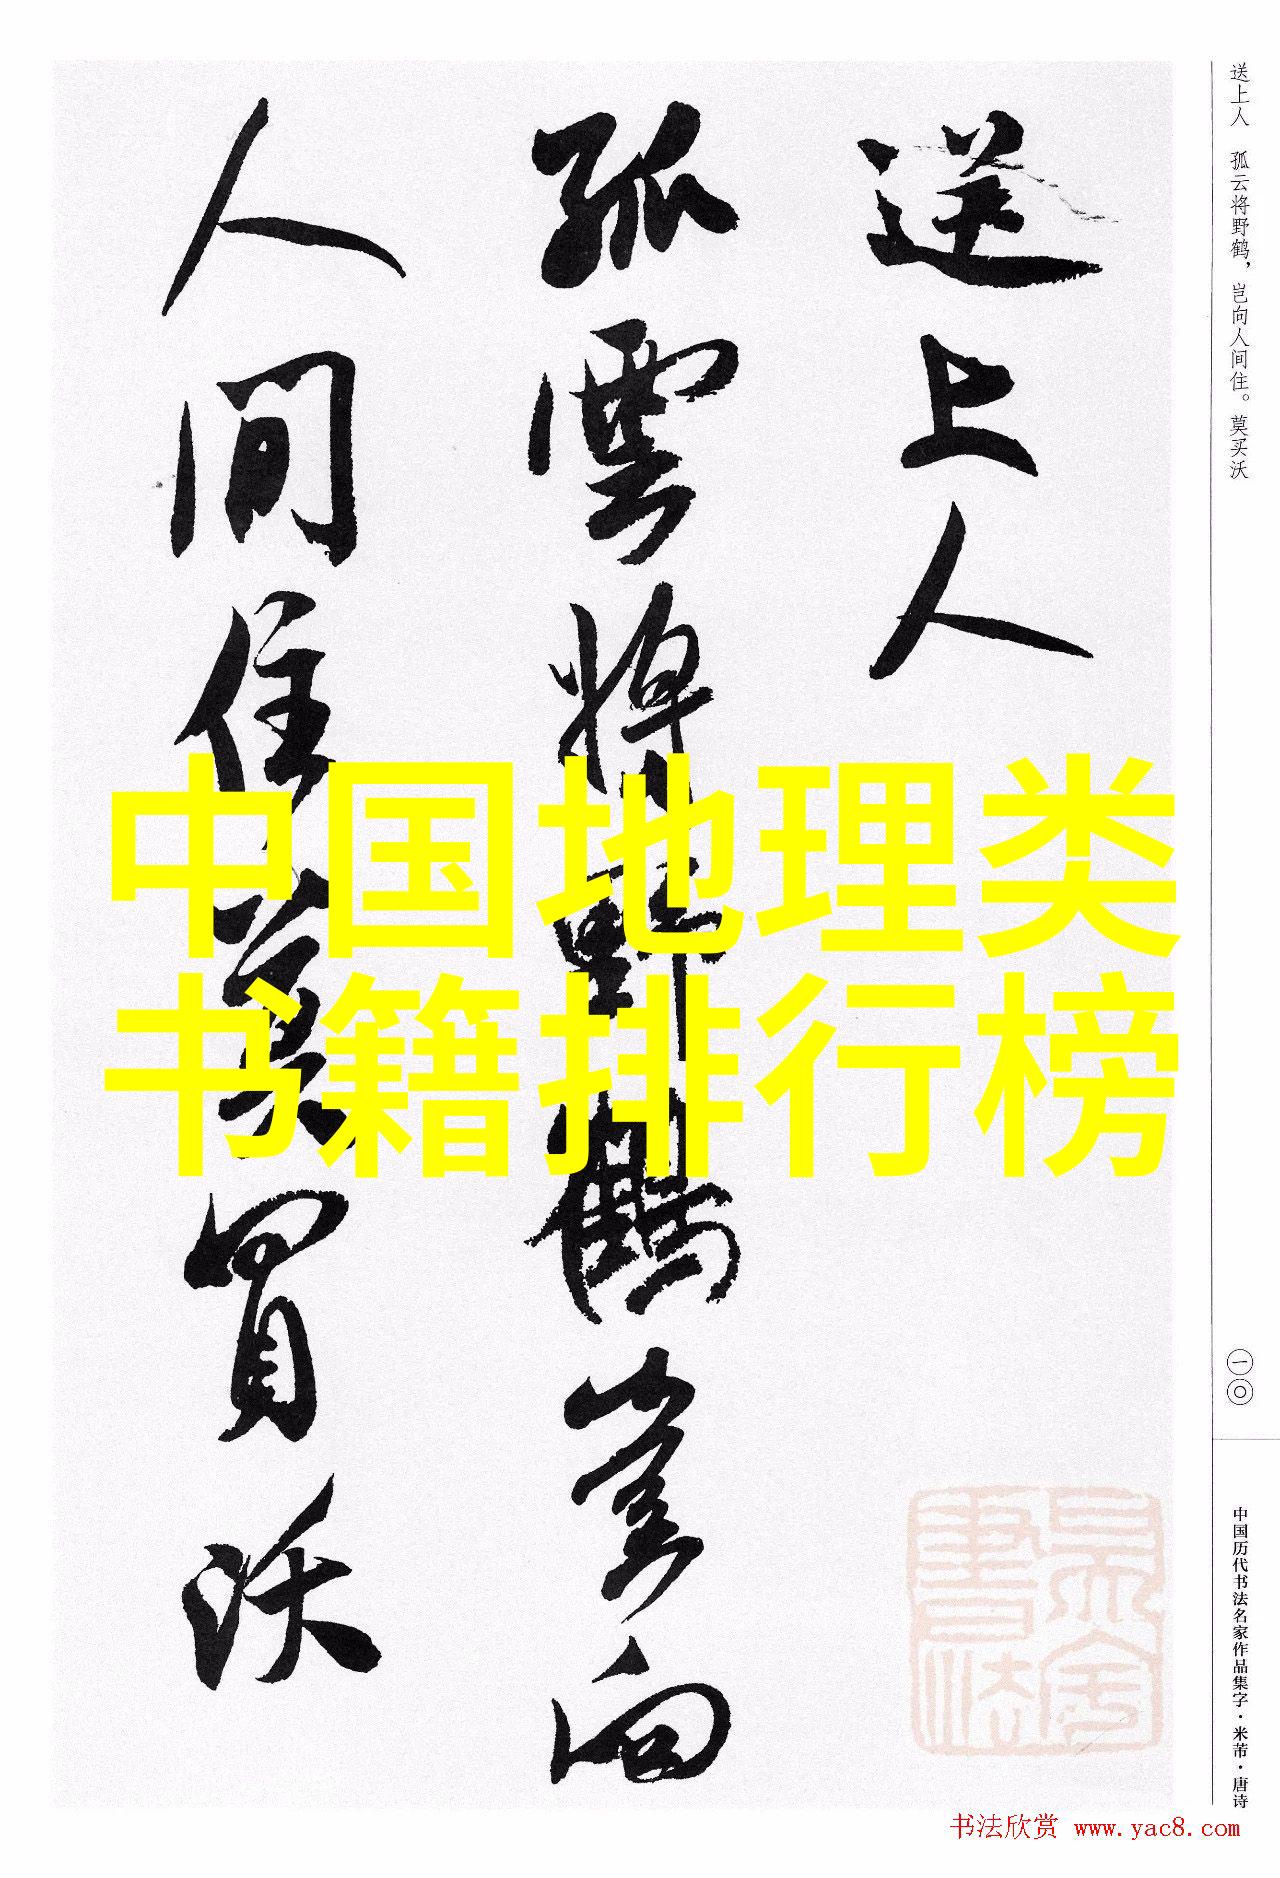 送上人
孤雲將野鶴豈向
人間住莫買沃
送上人 孤云将野鹤，岂向人间住。莫买沃
一〇
中国历代书法名家作品集字·米芾·唐诗
中国地理类
书籍排行榜
书法欣赏 www.yac8.com